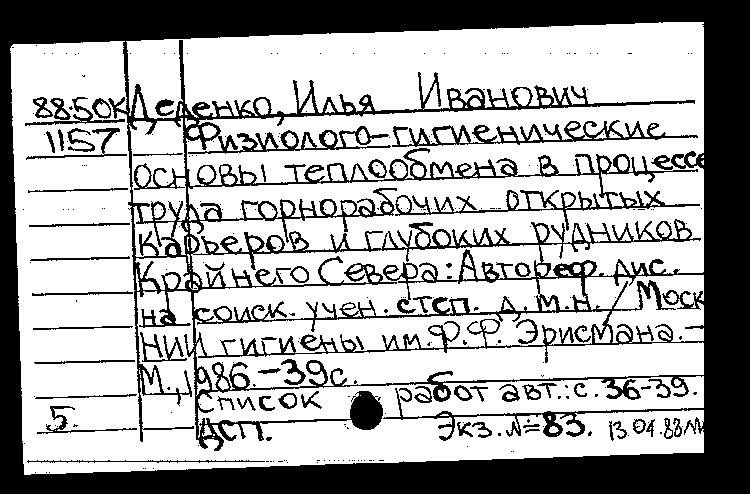 88-50К Деденко, Илья Иванович
1157 Физиолого-гигиенические
основы теплообмена в процессе
труда горнорабочих открытых
карьеров и глубоких рудников
Крайнего Севера: Автореф. дис.
на соиск. учен. степ. д.м.н. / Моск
НИИ гигиены им. Ф.Ф. Эрисмана. -
М., 1986. - 39с.
Список работ авт.: с. 36-39.
5. ДСП. Экз. №=83. 13.04.88